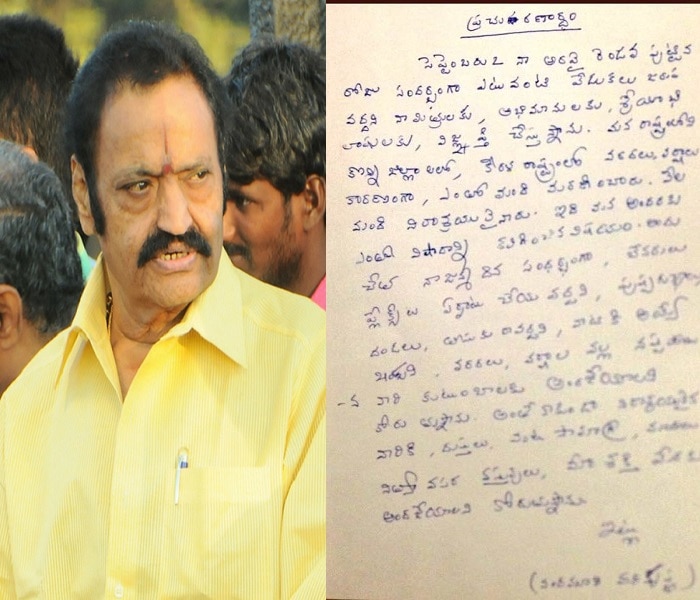 ప్రచురణార్థం
సెప్టెంబరు 2 నా అరవై రెండవ పుట్టిన
రోజు సందర్భంగా ఎటువంటి వేడుకలు జరప
వద్దని నా మిత్రులకు, అభిమానులకు, శ్రేయోభి
లాషులకు, విజ్ఞప్తి చేస్తున్నాను. మన రాష్ట్రంలోని
కొన్ని జిల్లాలలో, కేరళ రాష్ట్రంలో వరదలు, వర్షాలు
కారణంగా, ఎంతో మంది మరణించారు. వేల
మంది నిరాశ్రయులైనారు. ఇది మన అందరకు
ఎంతో విషాదాన్ని కలిగించిన విషయం. అందు
చేత నా జన్మదిన సందర్భంగా, బేనరులు
ఫ్లెక్సీలు ఏర్పాటు చేయవద్దని, పుష్పగుచ్ఛాలు
దండలు, తీసుకురావద్దని, వాటికి అయ్యే
ఖర్చుని, వరదలు, వర్షాల వల్ల నష్టపోయి
-న వారి కుటుంబాలకు అందజేయాలని
కోరుతున్నాను. అంతేకాకుండా నిరాశ్రయులైన
వారికి, దుస్తులు, వంట సామాగ్రి,
నిత్యావసర వస్తువులు, మీ శక్తి మేరకు
అందజేయాలని కోరుతున్నాను
ఇట్లు
(నందమూరి హరికృష్ణ)